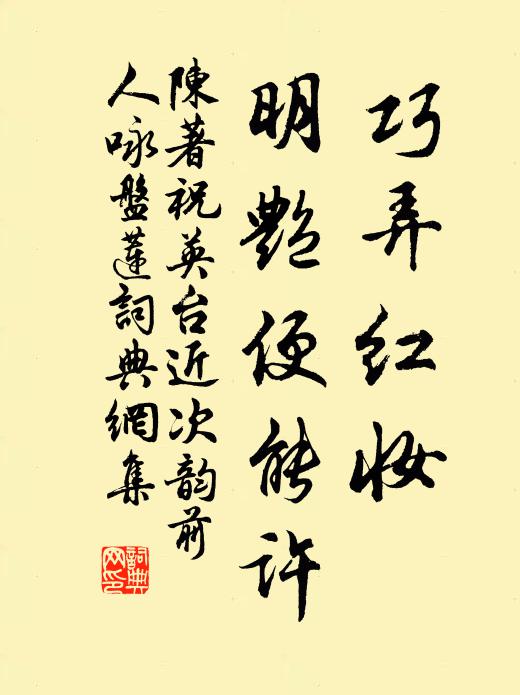 巧弄红妆
明艷便能许
陳著祝英台近次韵前
人咏盤蓮詞典網集
詞典网印